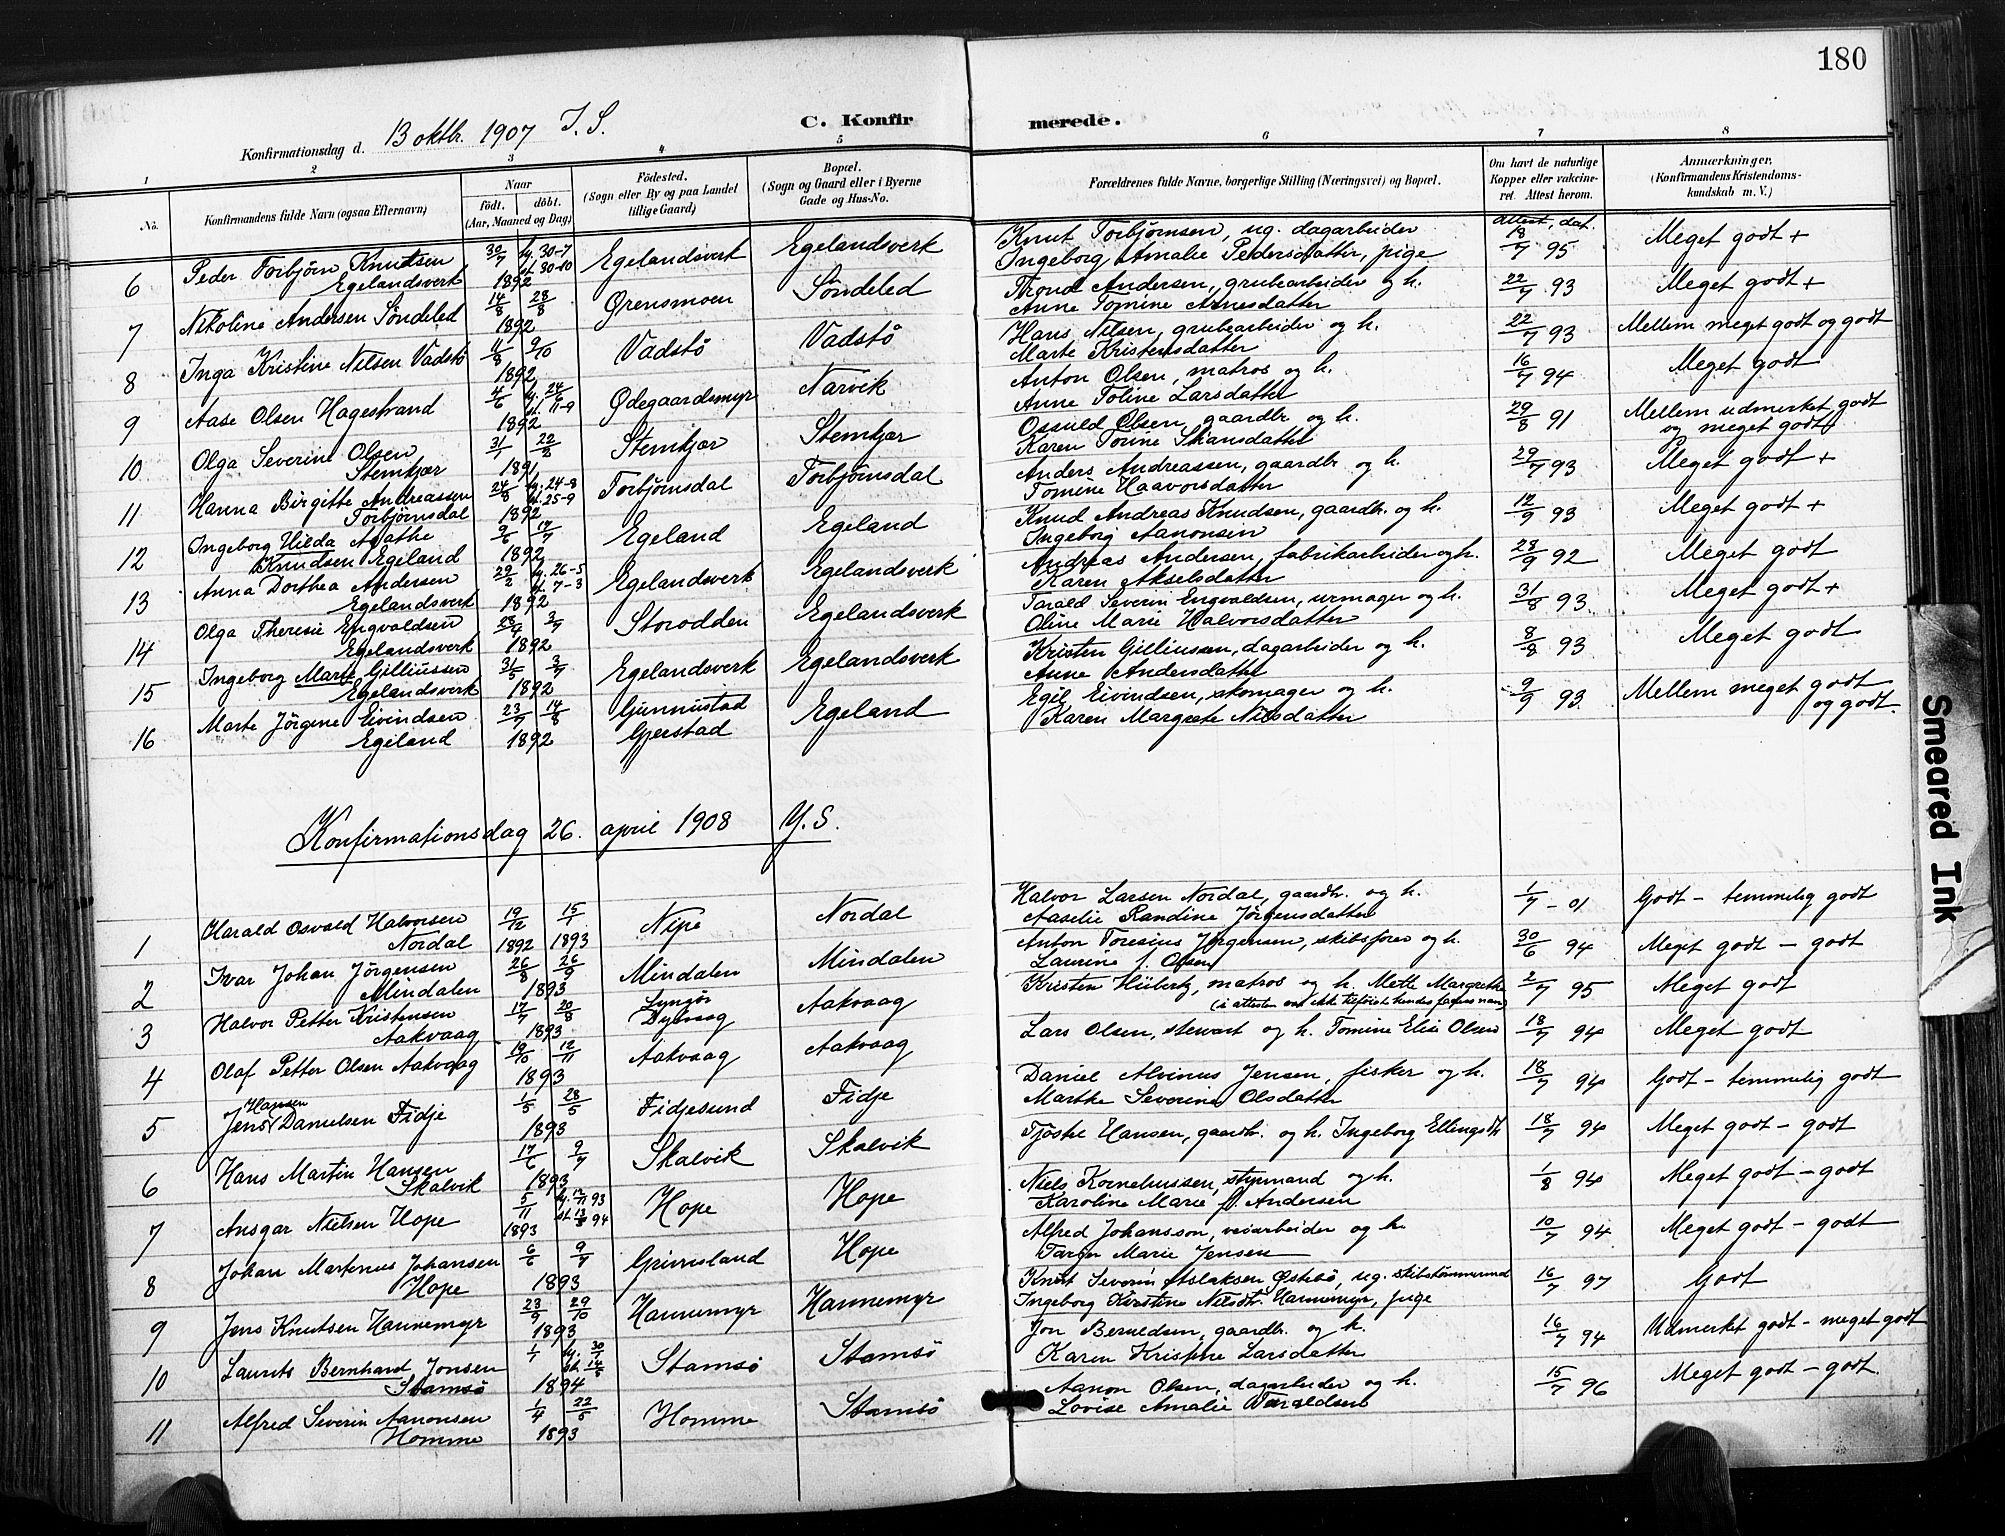 180
C. Konfirmerede.
Konfirmationsdag d. 13 oktbr. 1907 I. S.
1 2 3 4 5 6 7 8
No.
Konfirmandens fulde Navn (ogsaa Efternavn)
Naar
födt. döbt.
(Aar, Maaned og Dag)
Födested.
(Sogn eller By og paa Landet
tillige Gaard)
Bopæl.
(Sogn og Gaard eller i Byerne
Gade og Hus-No.
Forældrenes fulde Navne, borgerlige Stilling (Næringsvei) og Bopæl.
Om havt de naturlige
Kopper eller vakcine-
ret. Attest herom.
Anmærkninger.
(Konfirmandens Kristendoms-
kundskab m. V.)
attest, dat.
6 Peder Torbjörn Knutsen 30/7 hj. 30-7 Egelandsverk Egelandsverk Knut Torbjörnsen, ug. dagarbeider 18/7 95 Meget godt +
Egelandsverk 1892 st. 30-10 Ingeborg Amalie Pedersdatter, pige
7 Nikoline Andersen Söndeled 14/8 28/8 Grensmoen Söndeled Trond Andersen, grubearbeider og h. 22/7 93 Meget godt +
1892 Anne Tomine Arnesdatter
8 Inga Kristine Nilsen Vadstö 11/8 9/10 Vadstö Vadstö Hans Nilsen, grubearbeider og h. 22/7 93 Mellem meget godt og godt
1892 Marte Kristensdatter
9 Aase Olsen Hagestrand 4/6 hj. 24/6 Ødegaardsmyr Narvik Anton Olsen, matros og h. 16/7 94 Meget godt
1892 st. 11-9 Anne Toline Larsdatter
10 Olga Severine Olsen 31/1 22/8 Stemkjær Stemkjær Ossuld Olsen, gaardbr. og h. 29/8 91 Mellem udmerket godt
Stemkjær 1891 Karen Torine og meget godt
11 Hanna Birgitte Andreassen 24/8 hj. 24-8 Torbjörnsdal Torbjörnsdal Anders Andreassen, gaardbr. og h. 29/7 93 Meget godt +
Torbjörnsdal 1892 st. 25-9 Tomine Haavorsdatter
12 Ingeborg Hilda Agathe 9/6 17/7 Egeland Egeland Knud Andreas Knudsen, gaardbr. og h. 12/9 93 Meget godt +
Knudsen Egeland 1892 Ingeborg Aanonsen
13 Anna Dorthea Andersen 29/2 hj. 26-5 Egelandsverk Egelandsverk Andreas Andersen, fabrikarbeider og h. 28/9 92 Meget godt
Egelandsverk 1892 7-3 Karen Akselsdatter
14 Olga Theresie Engvaldsen 3/7 Storodden Egelandsverk Tarald Severin Engvaldsen, urmager og h. 31/8 93 Meget godt +
Egelandsverk 1892 Oline Marie Halvorsdatter
15 Ingeborg Marte Gilliussen 31/5 3/7 Egelandsverk Egelandsverk Kristen Gilliussen, dagarbeider og h. 8/8 93 Meget godt
Egelandsverk 1892 Anne Andersdatter
16 Marte Jörgine Eivindsen 23/7 14/8 Gunnustad Egeland Egil Eivindsen, skomager og h. 9/9 93. Mellem meget godt
Egeland 1892 Gjerstad Karen Margrete Nilsdatter og godt.
Konfirmationsdag 26. april 1908 Y. S.
1 Harald Osvald Halvorsen 19/12 15/1 Nipe Nordal Halvor Larsen Nordal, gaardbr. og h. 1/7 - 01 Godt - temmelig godt
Nordal 1892 1893 Aaselie Randine Jörgensdatter
2 Ivar Johan Jörgensen 26/8 26/9 Mindalen Mindalen Anton Toresius Jörgensen, skibsförer og h. 30/6 94 Meget godt - godt
Mindalen 1893 Laurine f. Olsen
3 Halvor Petter Kristensen 17/7 20/8 Lyngör Aakvaag Kristen Hübertz, matros og h. Mette Margrethe 2/7 95 Meget godt
Aakvaag 1893 Dybvaag (i attesten er ikke tilföiet hendes fagens navn)
4 Olaf Petter Olsen Aakvaag 19/10 12/11 Aakvaag Aakvaag Lars Olsen, stewart og h. Tomine Elise Olsen 18/7 94 Meget godt
1893
5 Jens Hansen Danielsen Fidje 1/5 28/5 Fidjesund Fidje Daniel Alvinus Jensen, fisker og h. 18/7 94 Godt - temmelig godt
1893 Marthe Severine Olsdatter
6 Hans Martin Hansen 17/6 9/7 Skalvik Skalvik Tjöstel Hansen, gaardbr. og h. Ingeborg Ellengsdtr. 18/7 94 Meget godt - godt
Skalvik 1893
7 Ansgar Nielsen Hope 5/11 hj. 12/11 93 Hope Hope Niels Korneliussen, styrmand og h. 1/8 94 Meget godt - godt
1893 st. 94 Karoline Marie f. Andersen
8 Johan Martinus Johansen 6/6 9/7 Grimsland Hope Alfred Johansson, veiarbeider og h. 10/7 94 Meget godt - godt
Hope 1893 Marie Jensen
9 Jens Knutsen Hannemyr 23/9 29/10 Hannemyr Hannemyr Knut Severin Aslaksen Östebö, ug. skibstömmermd. 16/7 97 Godt
1893 Ingeborg Kirstine Nilsdtr. Hannemyr, pige
10 Laurits Bernhard Jonsen 1/7 hj. 30/7 Stamsö Stamsö Jon Berneldsen, gaardbr. og h. 16/7 94 Udmerket godt - meget godt
Stamsö 1894 Karen Kristine Larsdatter
11 Alfred Severin Aanonsen 1/4 22/5 Homme Stamsö Aanon Olsen, dagarbeider og h. 15/7 96 Meget godt - godt.
Homme 1893 Lovise Amalie Taraldsen
Smeared Ink